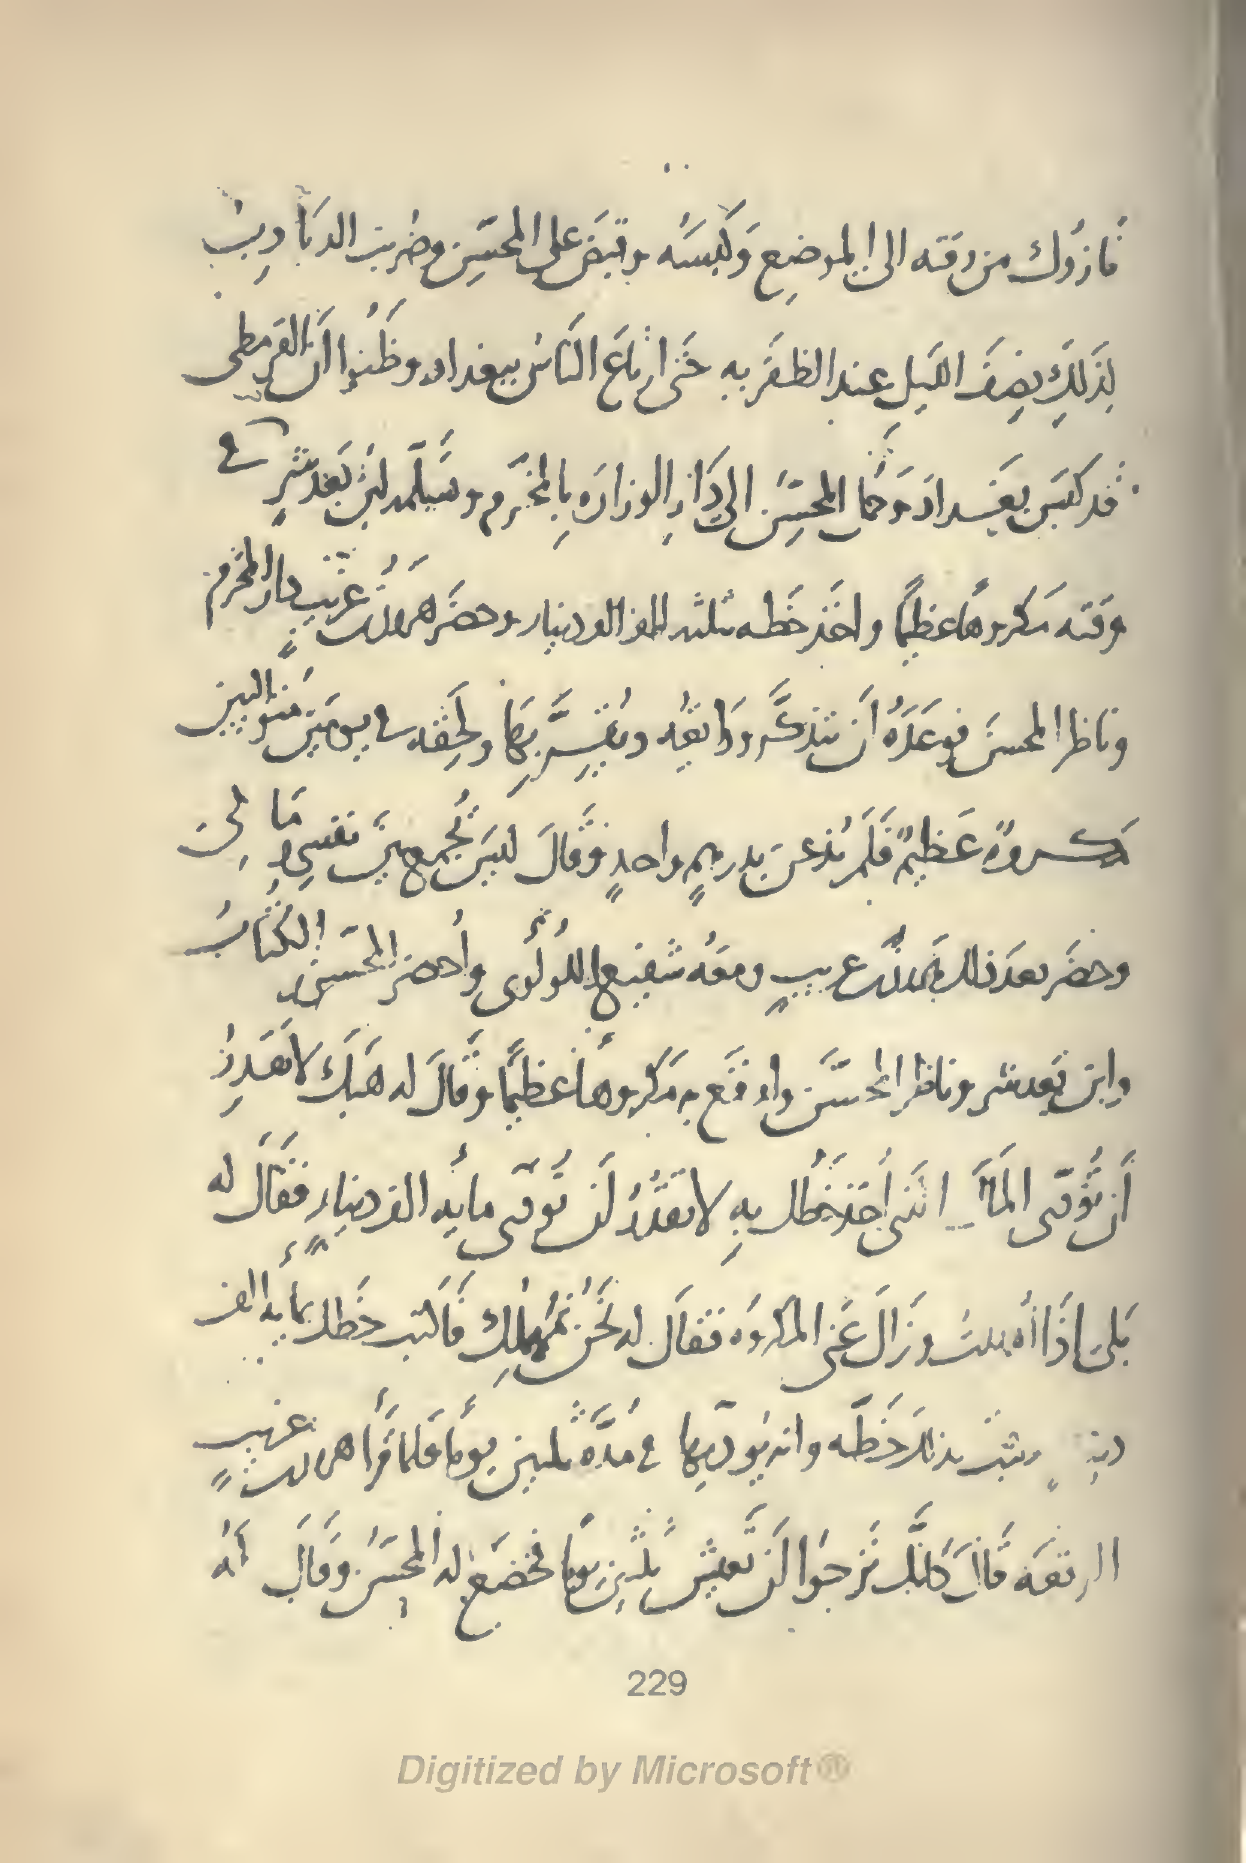 فازوك من وقته الى الموضع وَكبسَه وقبضَ على المحَسِّن وضُربت الدبَادِبُ
لِذَلِكَ نِصفَ اللَيلِ عند الظفَر به حَتى ارتاعَ الناسُ ببغداد وظَنُوا انَ القرمطى
قد كبسَ بغداد وَحُمل المحسِّن الى دَارِ الوزارَه بِالمخَرِّم وتسَلّمه ابن بَعُد شرٍ في
وَقته مَكروهًا عظيمًا واخَذ خَطه بثلثه الف الف دينار وحضَرَ هَرون بن غَريب دار المخَرم
وناظر المحسنَ فوعَدَهُ أن يتذكَّر ودَائعَه ويُقِرَّ بِهَا ولَحِقَه في يومَين مُتواليين
مَكروهٌ عَظيمٌ فلَم يُذعن بدرهمٍ واحدٍ وَقالَ ليسَ تُجمع بينَ نفسِي وَمَالِي
وحضَر بعدَ ذلك هَرون بن غريبٍ ومعَه شفيع اللُولُوى واُحضر المحَسن والكُتَّابُ
وابن بَعد شر وناظر المحسَّن واوقَع به مَكروهاً عظيمًا وَقالَ له هَبكَ لا تقَدِرُ
أن تُؤدّى المالَ الذى أُخِذ خَطُك بِهِ لا تقدُرُ أن تُؤدّى مايه الف دينارٍ فقَالَ له
بَلى إذَا اُمهلتُ وزَالَ عَنى المكروَه فقَالَ له نَحنُ نُمهِلك فَاكتب خَطك بمايه الف
دينارٍ فكتب بذلك خَطّه وانه يُودّيها في مُدَّة ثلثين يومًا فلما قَرأ هرون بن غريبٍ
الرقعَه قَالَ كانَّك تَرجوا أن تَعيش ثلثين يومًا فخضَعَ له المحسَن وقَالَ لَهُ
229
Digitized by Microsoft®